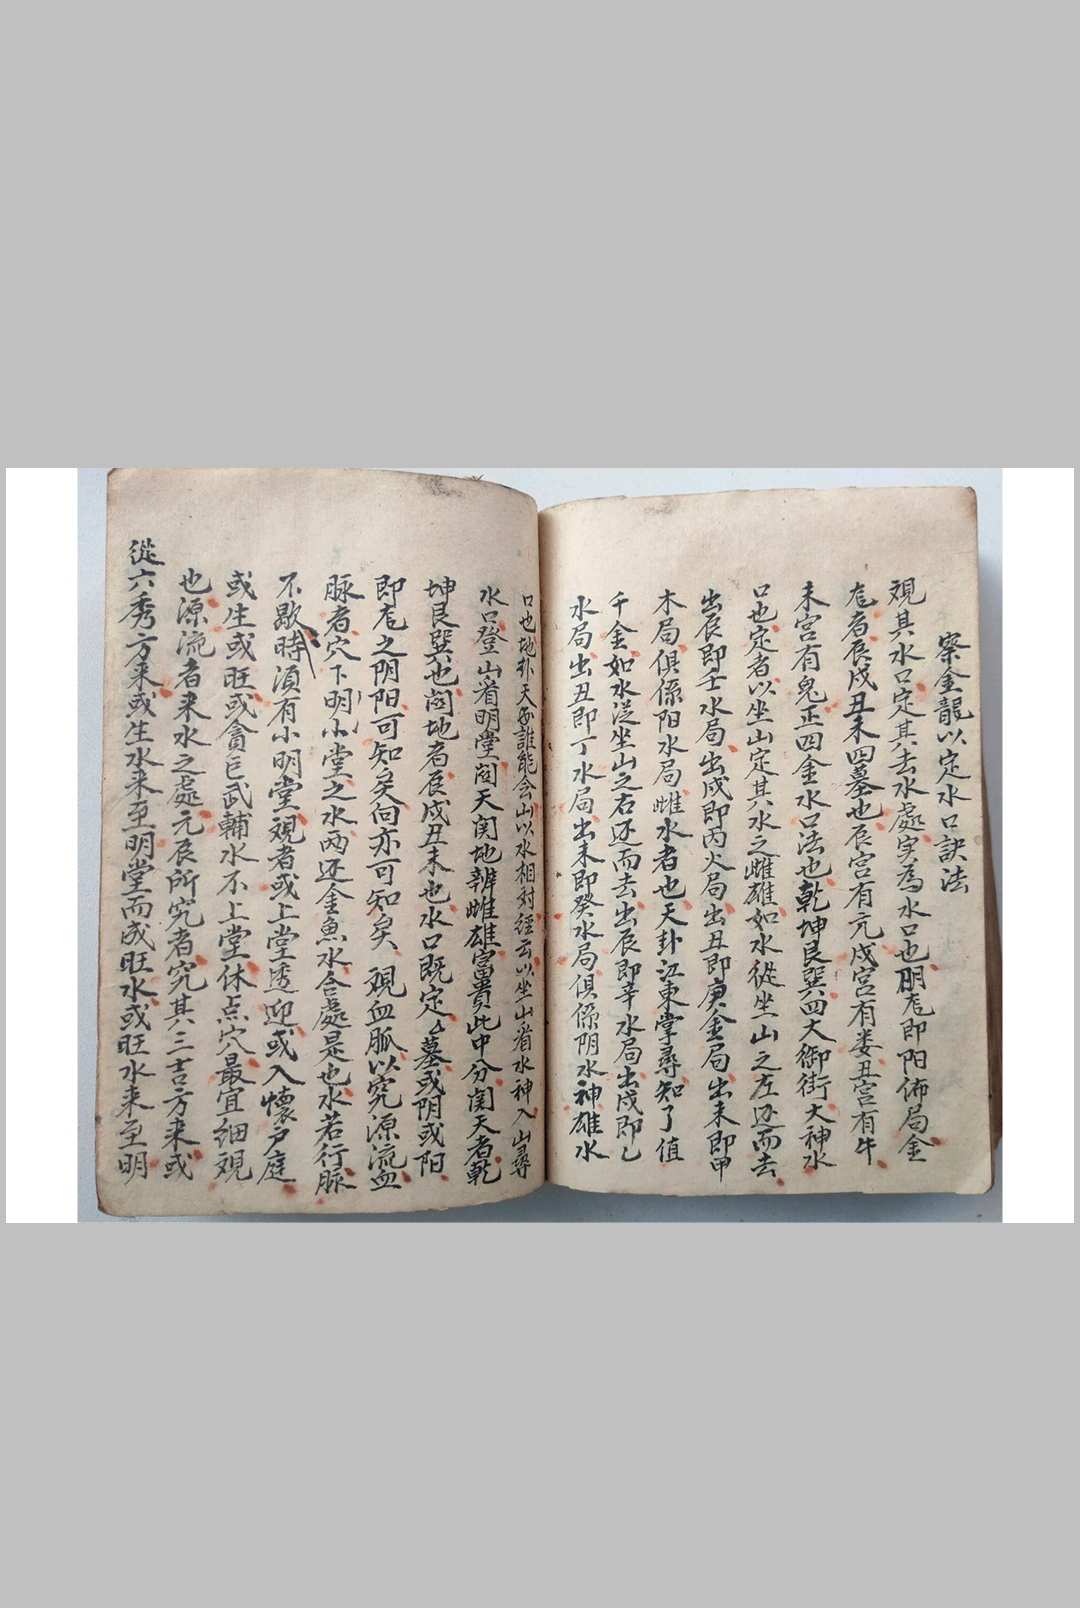 察金龍以定水口訣法
覌其水口定其去水處実為水口也明庑即阳佈局金
庑者辰戍丑未四墓也辰宫有亢戍宫有娄丑宫有牛
未宫有鬼正四金水口法也乾坤艮巽四大御街大神水
口也定者以坐山定其水之雌雄如水從坐山之左还而去
出辰即壬水局出戍即丙火局出丑即庚金局出未即甲
木局俱係阳水局雌水者也天卦江東掌尋知了值
千金如水迳坐山之右还而去出辰即辛水局出戍即乙
水局出丑即丁水局出未即癸水局俱係阴水神雄水
口也地外天誰能会山以水相对經云以坐山看水神入山尋
水口登山看明堂闾天関地辨雌雄富貴此中分関天者乾
坤艮巽也闾地者辰戍丑未也水口既定墓或阴或阳
即庑之阴阳可知矣向亦可知矣覌血脈以究源流血
脉者穴下明小堂之水两还金魚水合處是也水若行脉
不歇時湏有小明堂覌者或上堂透迎或入懷戸庭
或生或旺或貪巨武輔水不上堂休点穴最宜细覌
也源流者来水之處元辰所究者究其三吉方来或
從六秀方来或生水来至明堂而成旺水或旺水来至明